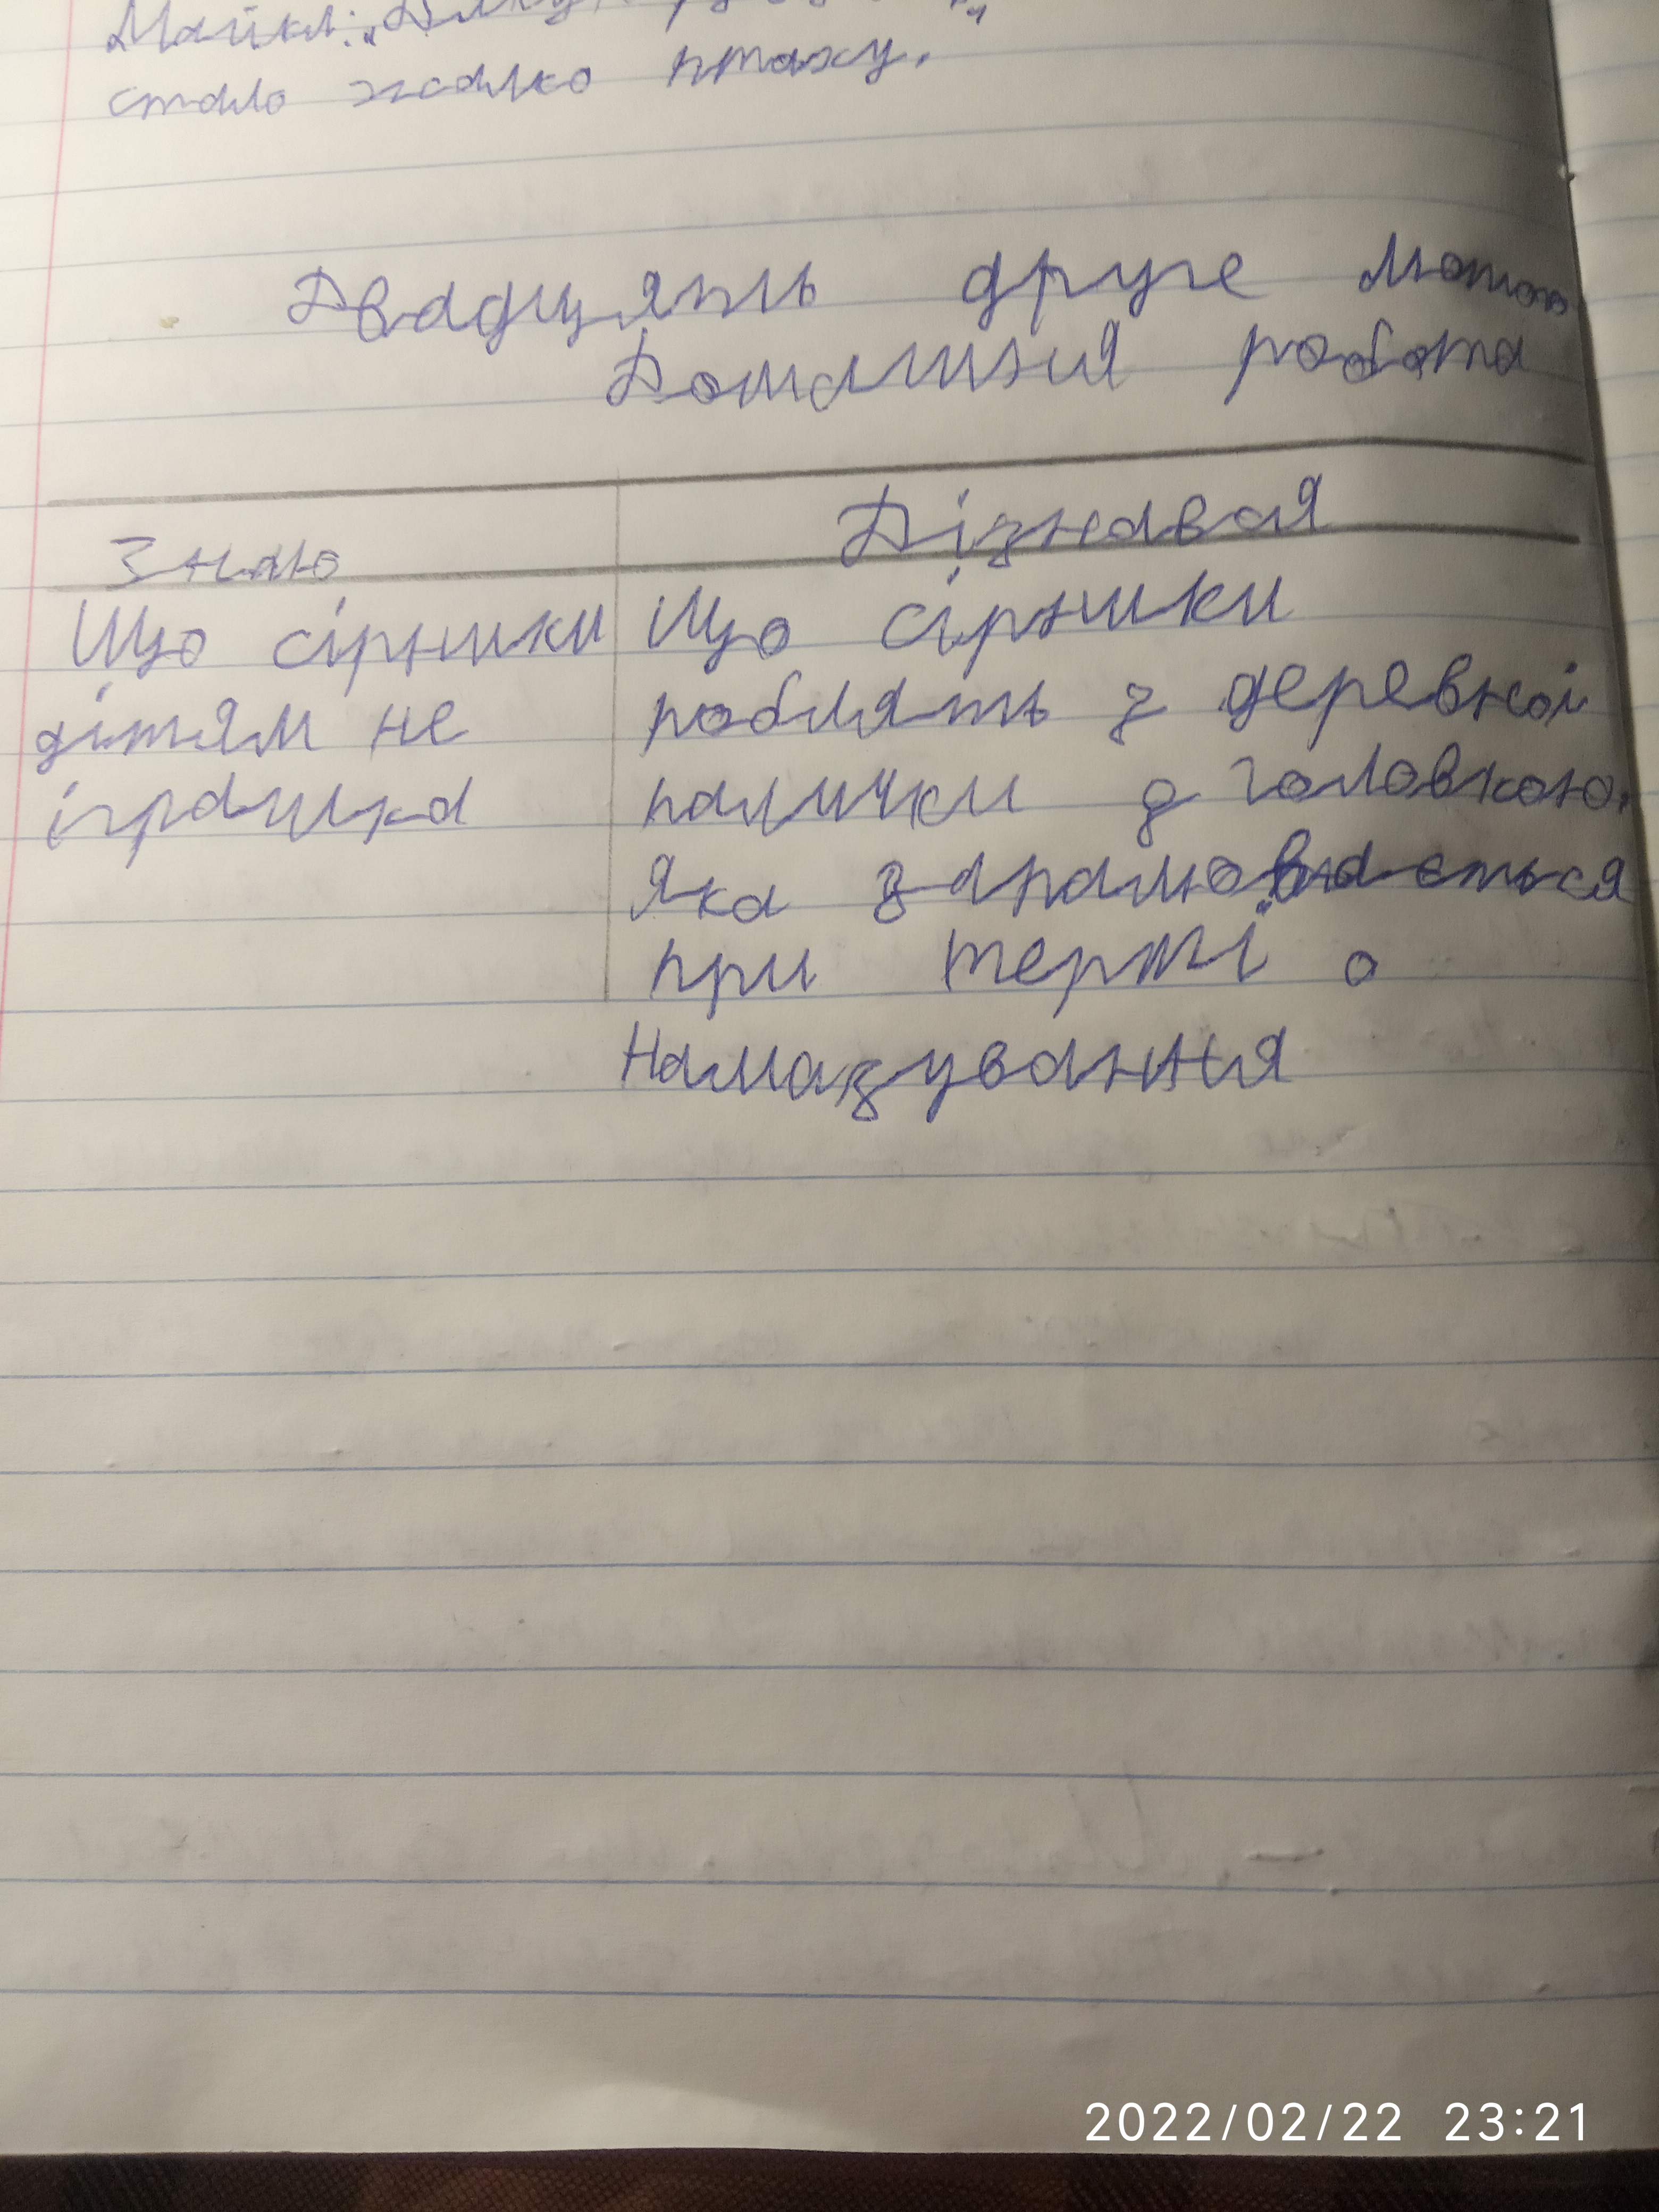 Майкл:
стало жалко птаху.
Двадцять друге лютого
Домашня робота
Знаю
Дізнався
Що сірники
дітям не
іграшка
Що сірники
роблять з деревної
палички з головкою,
яка запалювається
при терті о
намазування
2022/02/22 23:21